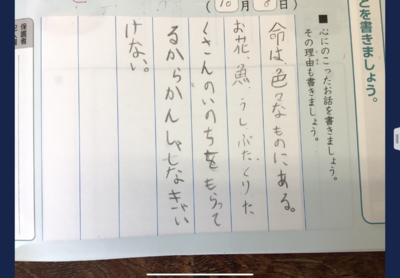 とを書きましょう。
10月8日
■心にのこったお話を書きましょう。
その理由も書きましょう。
命は、色々なものにある。
お花、魚、うしぶたとりた
くさんのいのちをもらって
るからかんしゃしなきゃい
けない。
保護者